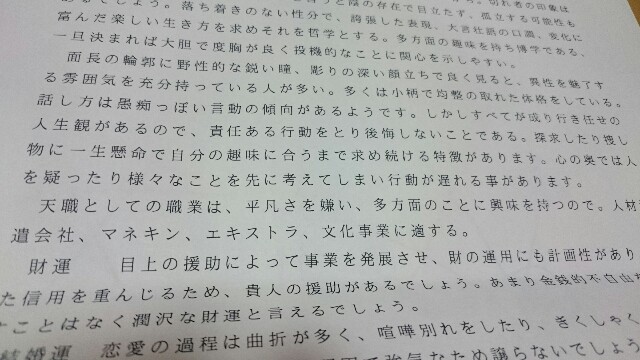 あるでしょう。落ち着きのない性分で、誇張した表現、大言壮語の口調、変化に
富んだ楽しい生き方を求めそれを哲学とする。多方面の趣味を持ち博学である、
一旦決まれば大胆で度胸が良く投機的なことに関心を示しやすい。
面長の輪郭に野性的な鋭い瞳、彫りの深い顔立ちで良く見ると、異性を魅了す
る雰囲気を充分持っている人が多い。多くは小柄で均整の取れた体格をしている。
話し方は愚痴っぽい言動の傾向があるようです。しかしすべてが成り行き任せの
人生観があるので、責任ある行動をとり後悔しないことである。探求したり捜し
物に一生懸命で自分の趣味に合うまで求め続ける特徴があります。心の奥では人
を疑ったり様々なことを先に考えてしまい行動が遅れる事があります。
天職としての職業は、平凡さを嫌い、多方面のことに興味を持つので。人材
遣会社、マネキン、エキストラ、文化事業に適する。
財運 目上の援助によって事業を発展させ、財の運用にも計画性があり
た信用を重んじるため、貴人の援助があるでしょう。あまり金銭的不自由
ことはなく潤沢な財運と言えるでしょう。
結婚運 恋愛の過程は曲折が多く、喧嘩別れをしたり、きくしゃく
強気なため譲らないでしょう